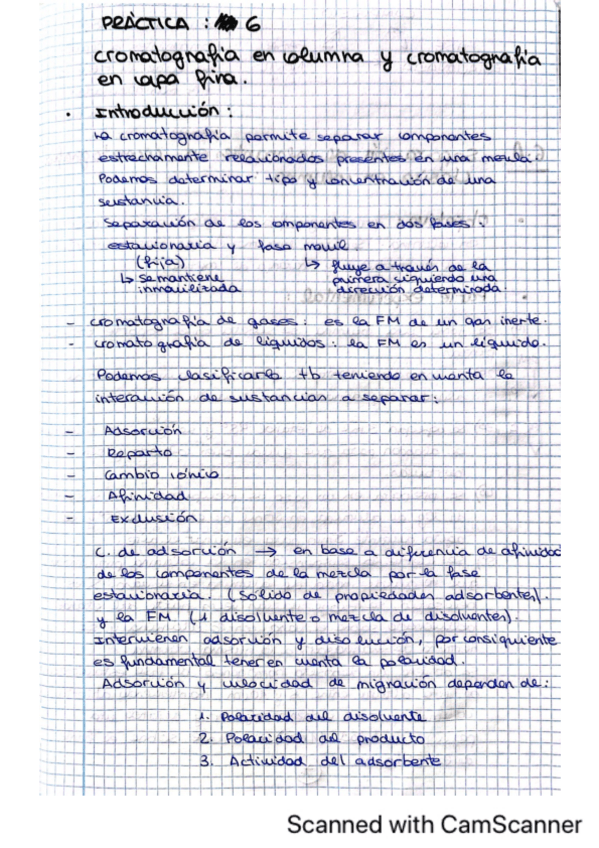 PRÁCTICA : 6
cromatografía en columna y cromatografía
en capa fina.
• Introducción :
La cromatografía permite separar componentes
estrechamente relacionados presentes en una mezcla.
Podemos determinar tipo y concentración de una
sustancia.
Separación de los componentes en dos fases :
estacionaria y fase movil.
(fija) ↳ fluye a través de la
↳ Se mantiene primera siguiendo una
inmovilizada dirección determinada.
- cromatografía de gases : es la FM de un gas inerte.
- cromatografía de líquidos : la FM es un líquido.
Podemos clasificarla tb teniendo en cuenta la
interacción de sustancias a separar :
- Adsorción
- Reparto
- Cambio iónico
- Afinidad
- Exclusión
C. de adsorción → en base a diferencia de afinidad
de los componentes de la mezcla por la fase
estacionaria. (Sólido de propiedades adsorbentes).
y la FM (1 disolvente o mezcla de disolventes).
Intervienen adsorción y disolución, por consiguiente
es fundamental tener en cuenta la polaridad.
Adsorción y velocidad de migración dependen de :
1. Polaridad del disolvente
2. Polaridad del producto
3. Actividad del adsorbente
Scanned with CamScanner